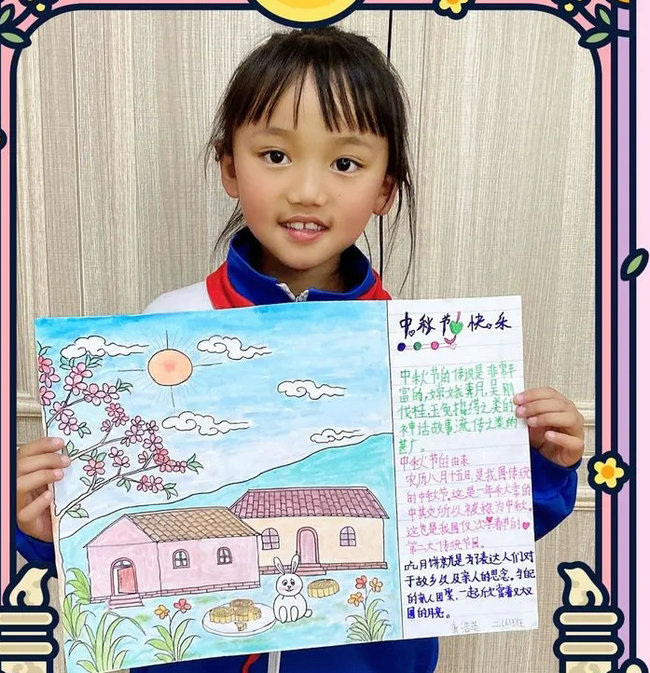 中秋节快乐
中秋节的传说是非常丰
富的,嫦娥奔月,吴刚
伐桂,玉兔捣药之类的
神话故事流传之类的
甚广。
中秋节的由来
农历八月十五日,是我国传统
的中秋节。这是一年秋季的
中其 所以被称为中秋。
这也是我国仅次于春节的
第二大传统节日。
吃月饼就是为了表达人们对
于故乡以及亲人的思念。与自己
的亲人团聚,一起欣赏着又大又
圆的月亮。